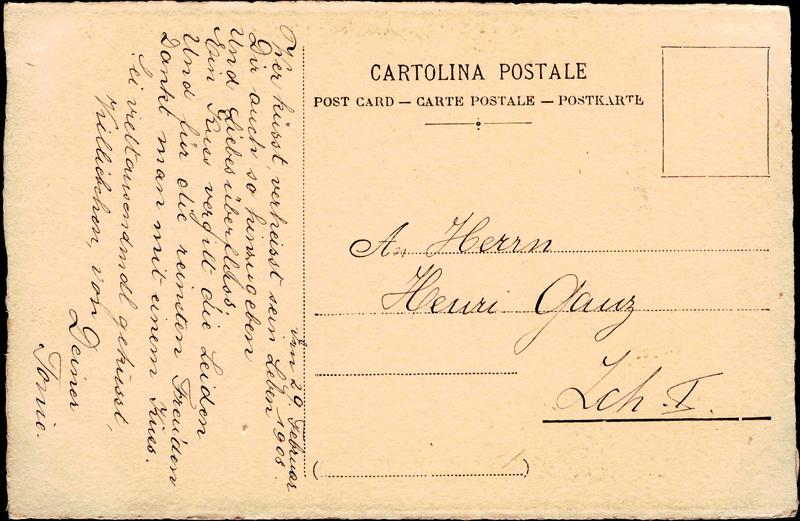 CARTOLINA POSTALE
POST CARD — CARTE POSTALE — POSTKARTE
An Herrn
Henri Ganz
Zch I.
den 29 Februar
1908.
Wer küsst, verheisst sein Leben
Dir auch so hinzugeben
Und Liebesüberfluss.
Ein Kuss vergilt die Leiden
Und für die reinsten Freuden
Dankt man mit einem Kuss.
Sei vieltausendmal geküsst,
von
Deiner
Tonie.